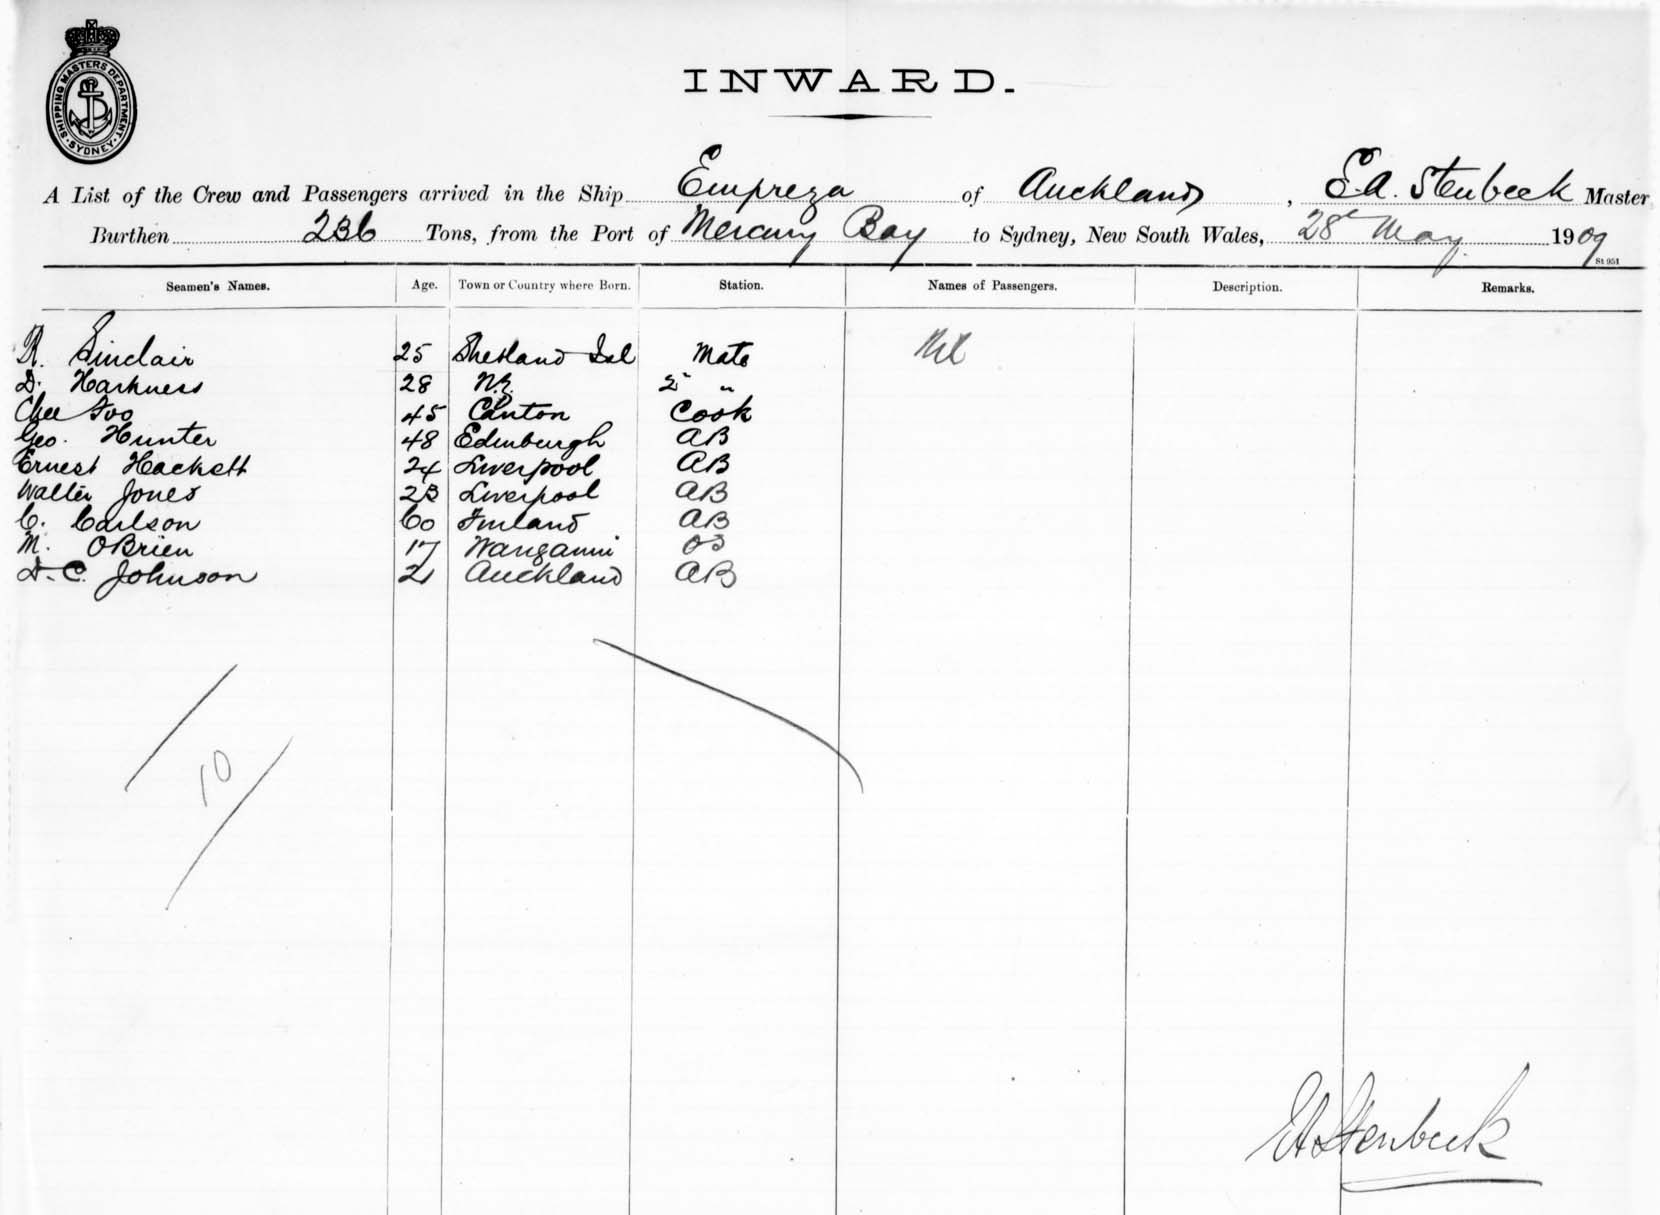 SHIPPING MASTERS DEPARTMENT
SYDNEY
INWARD.
A List of the Crew and Passengers arrived in the Ship Empreza of Auckland, E.A. Stenbeck Master
Burthen 236 Tons, from the Port of Mercury Bay to Sydney, New South Wales, 28th May 1909
St 951
Seamen's Names. Age. Town or Country where Born. Station. Names of Passengers. Description. Remarks.
R. Sinclair 25 Shetland Isl Mate Nil
D. Harkness 28 N.Z. 2nd "
Chee Foo 45 Canton Cook
Geo. Hunter 48 Edinburgh AB
Ernest Hackett 24 Liverpool AB
Walter Jones 23 Liverpool AB
C. Carlson 60 Finland AB
M. OBrien 17 Wanganui OS
D. C. Johnson 21 Auckland AB
10
EAStenbeck